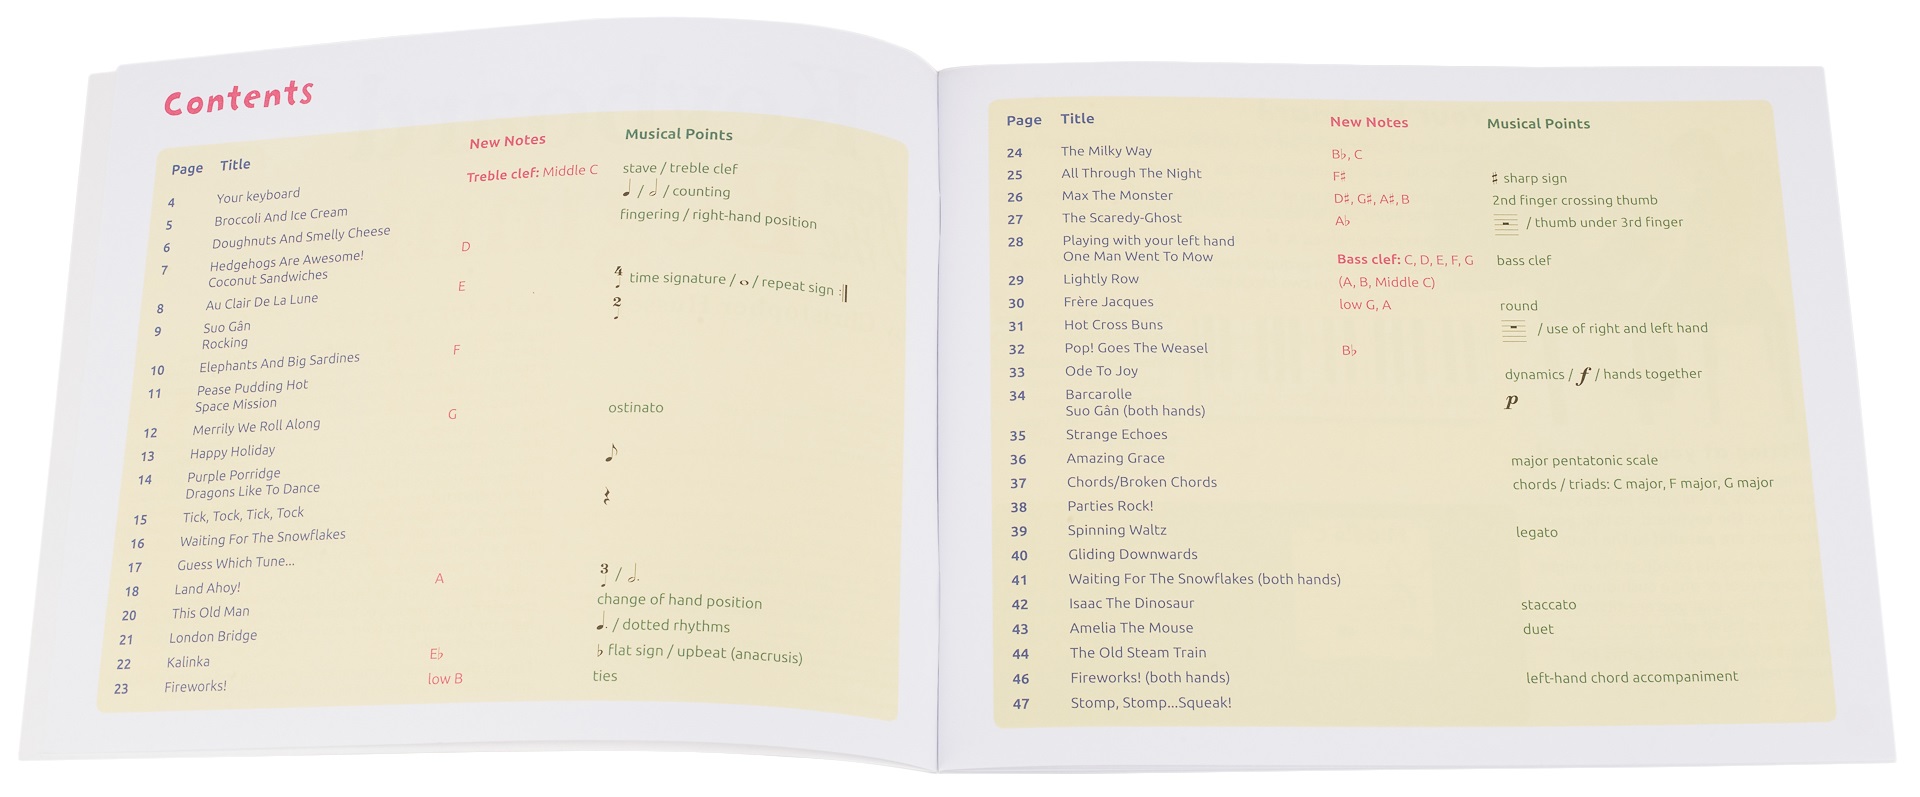 Contents
Page Title New Notes Musical Points
4 Your keyboard Treble clef: Middle C stave / treble clef
5 Broccoli And Ice Cream 𝅘𝅥 / 𝅗𝅥 / counting
6 Doughnuts And Smelly Cheese fingering / right-hand position
7 Hedgehogs Are Awesome! D
Coconut Sandwiches
8 Au Clair De La Lune E 4 time signature / 𝅝 / repeat sign 𝄇
9 Suo Gân 2
Rocking
10 Elephants And Big Sardines F
11 Pease Pudding Hot
Space Mission
12 Merrily We Roll Along G ostinato
13 Happy Holiday
14 Purple Porridge ♪
Dragons Like To Dance
15 Tick, Tock, Tick, Tock 𝄽
16 Waiting For The Snowflakes
17 Guess Which Tune...
18 Land Ahoy! A 3 / 𝅗𝅥.
20 This Old Man change of hand position
21 London Bridge 𝅘𝅥. / dotted rhythms
22 Kalinka E♭ ♭ flat sign / upbeat (anacrusis)
23 Fireworks! low B ties
Page Title New Notes Musical Points
24 The Milky Way B♭, C
25 All Through The Night F♯ ♯ sharp sign
26 Max The Monster D♯, G♯, A♯, B 2nd finger crossing thumb
27 The Scaredy-Ghost A♭ 𝄼 / thumb under 3rd finger
28 Playing with your left hand
One Man Went To Mow Bass clef: C, D, E, F, G bass clef
29 Lightly Row (A, B, Middle C)
30 Frère Jacques low G, A round
31 Hot Cross Buns 𝄻 / use of right and left hand
32 Pop! Goes The Weasel B♭
33 Ode To Joy dynamics / f / hands together
34 Barcarolle p
Suo Gân (both hands)
35 Strange Echoes
36 Amazing Grace major pentatonic scale
37 Chords/Broken Chords chords / triads: C major, F major, G major
38 Parties Rock!
39 Spinning Waltz legato
40 Gliding Downwards
41 Waiting For The Snowflakes (both hands)
42 Isaac The Dinosaur staccato
43 Amelia The Mouse duet
44 The Old Steam Train
46 Fireworks! (both hands) left-hand chord accompaniment
47 Stomp, Stomp...Squeak!